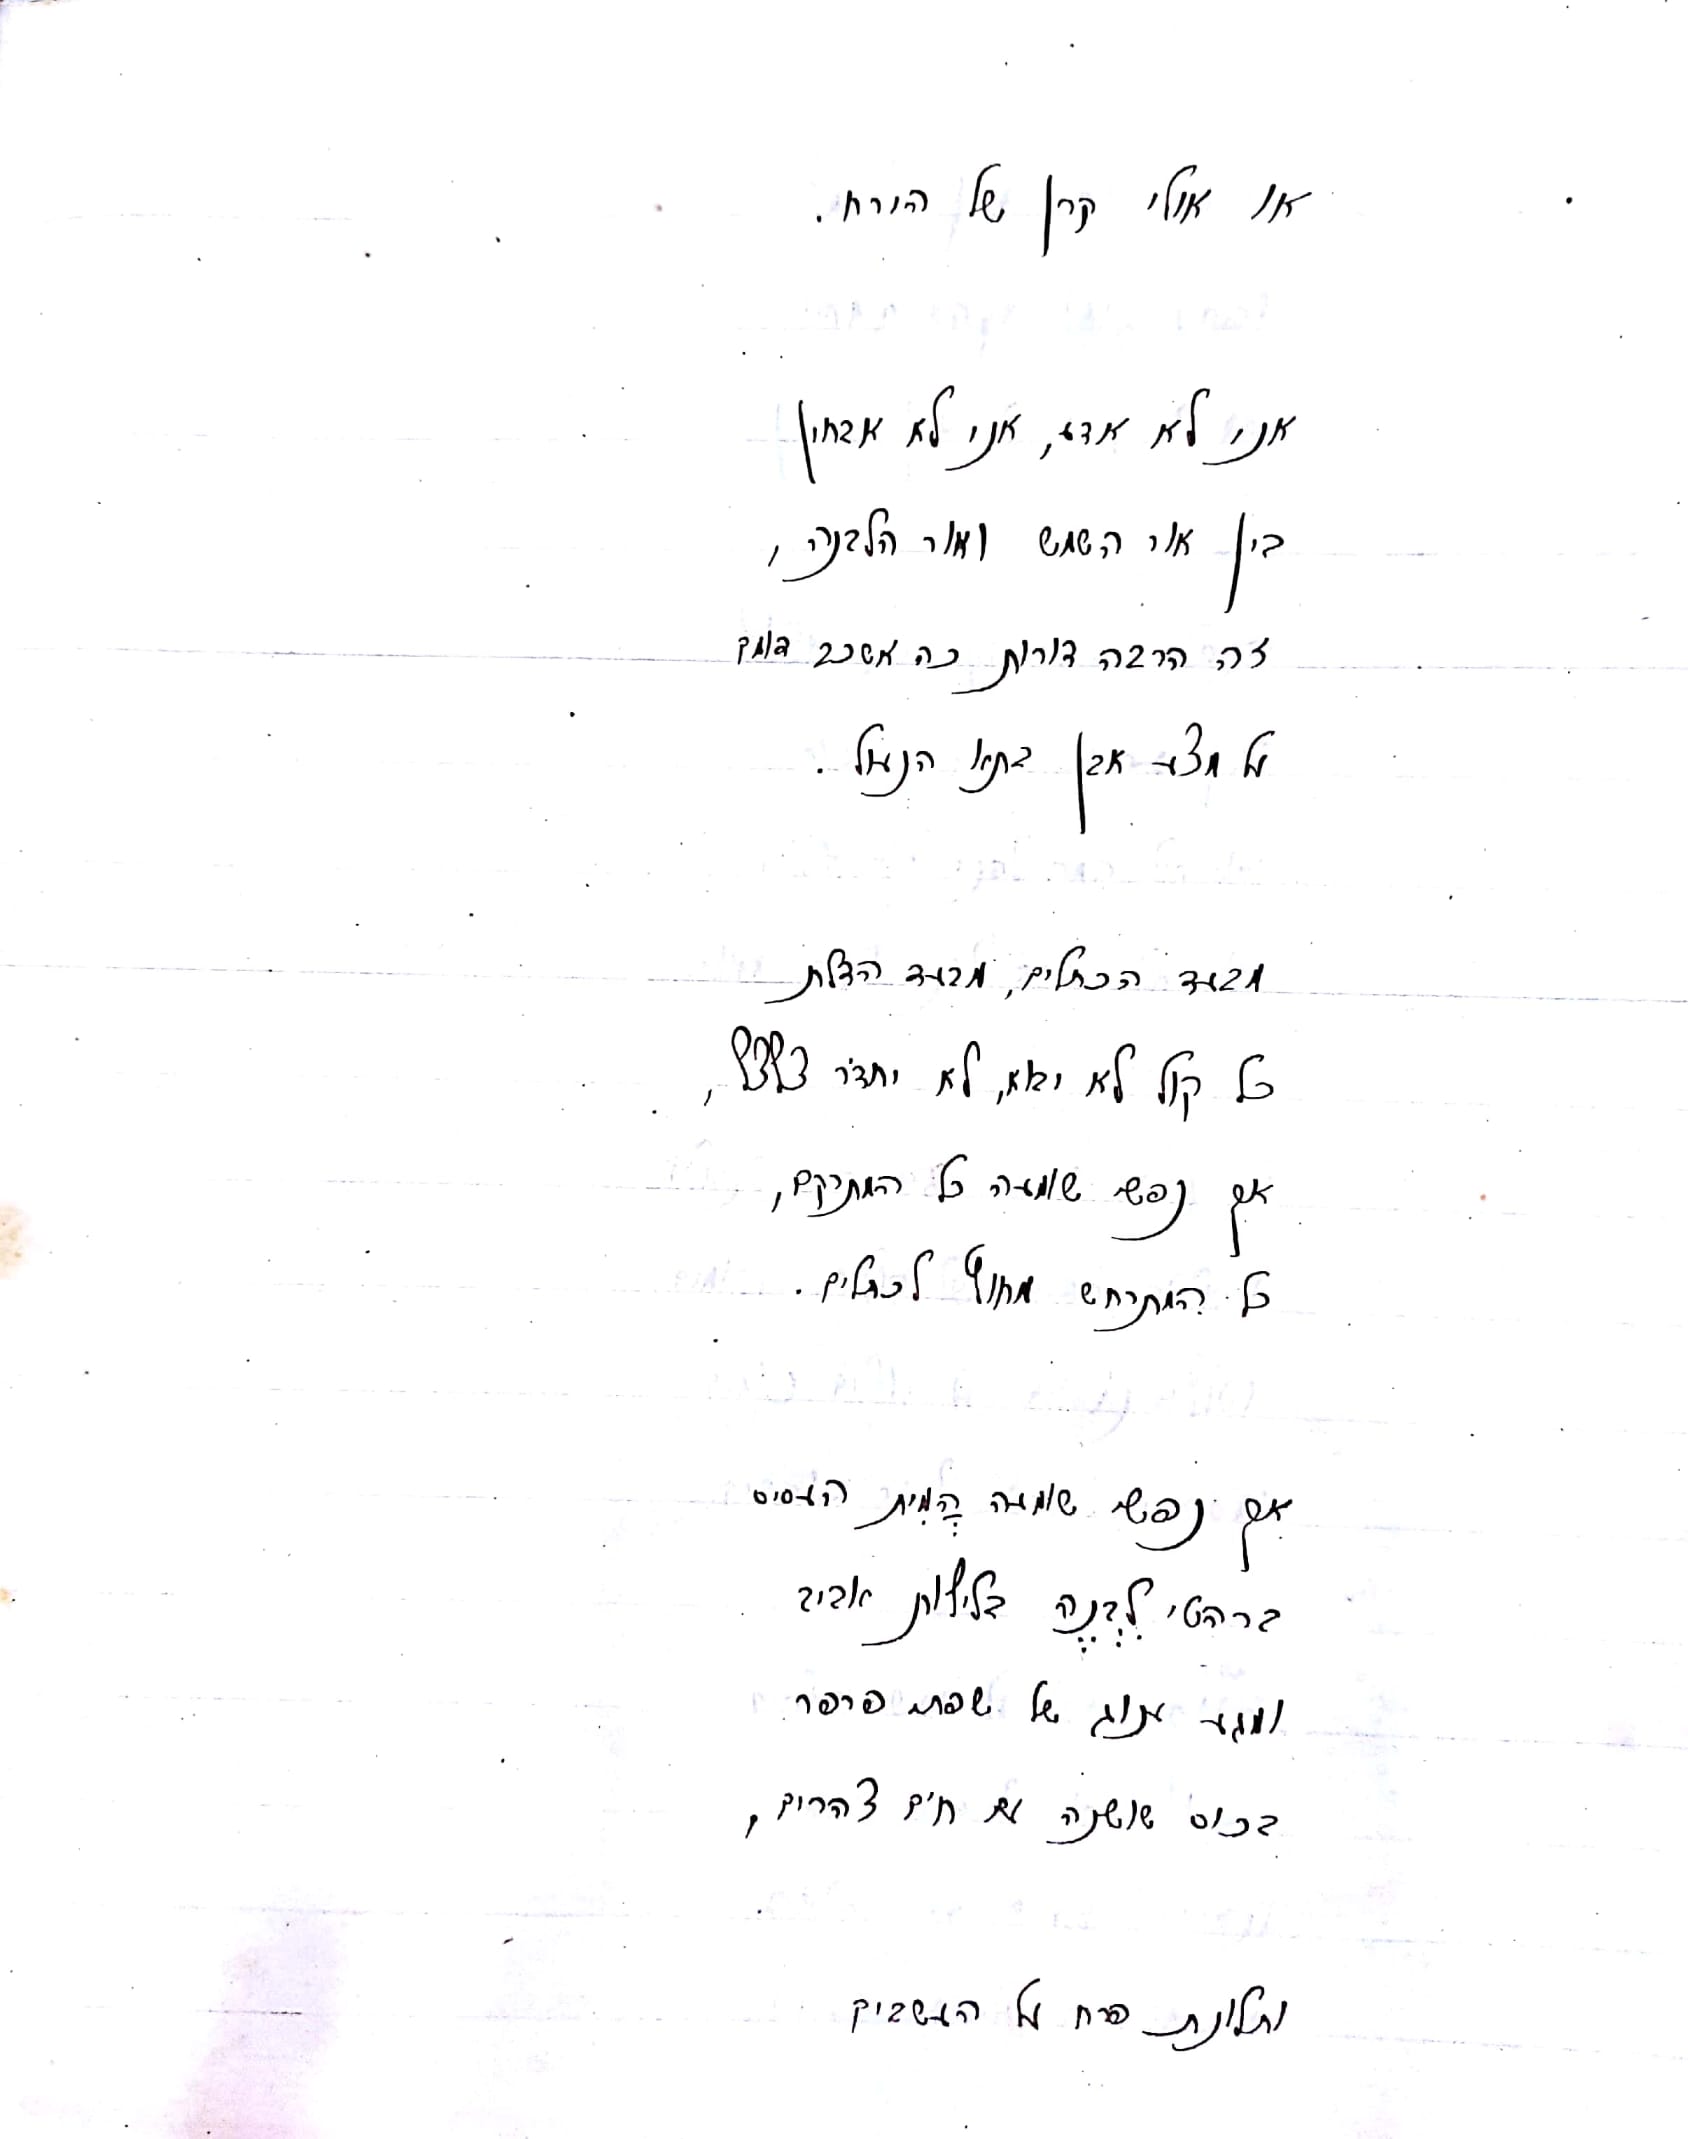 או אולי קרן של הירח.
אני לא אדע, אני לא אבחין
בין אור השמש ואור הלבנה,
זה הרבה דורות כה אשכב דומם
על מצע אבן בתאו הנעול.
מבעד הכתלים, מבעד הדלת
כל קול לא יבוא, לא יחדֹר צלצול,
אך נפשי שומעה כל המתרקם,
כל המתרחש מחוץ לכתלים.
אך נפשי שומעה הֶמְיַת העסיס
ברהטי לִבְנֶה בלילות אביב
ומגע ענוג של שפתי פרפר
בכוס שושנה עם חֹם צהרים,
ותלונת פרח על העשביק